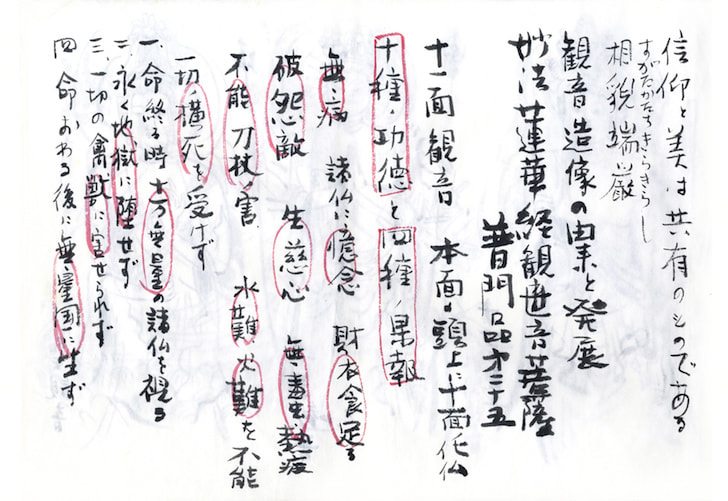 信仰と美は共有のものである
すがたかたちきらきらし
相貌端厳
観音造像の由来と発展
妙法蓮華経観世音菩薩
普門品第二十五
十一面観音 本面の頭上に十面化仏
十種ノ功徳と四種ノ果報
無病 諸仏に憶念 財衣食足る
破怨敵 生慈心 無毒虫熱病
不能刀杖ノ害 水難火難を不能
一切横死を受けず
一、命終る時十方無量の諸仏を視る
二、永く地獄に堕せず
三、一切の禽獣に害せられず
四、命おわる後に無量国に生ず